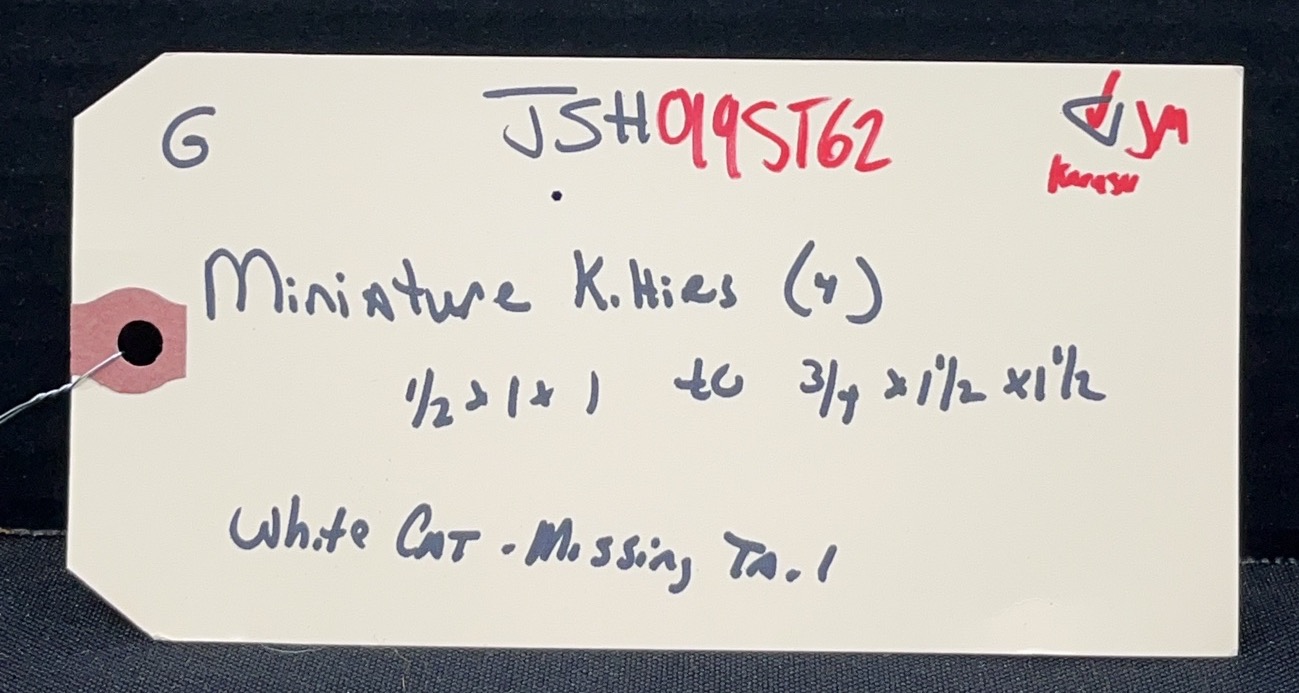 G JSH099ST62 JM
Karasu
Miniature Kitties (4)
1/2 x 1 x 1 to 3/4 x 1 1/2 x 1 1/2
White Cat - Missing Tail